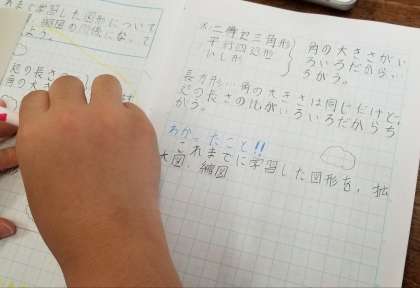 学習した図形について
辺の長さ
角の大き
×・二等辺三角形
平行四辺形
ひし形
角の大きさがい
ろいろだから、
ちがう。
長方形…角の大きさは同じだけど、
辺の長さの比がいろいろだからち
がう。
わかったこと!!
これまでに学習した図形を、拡
大図、縮図